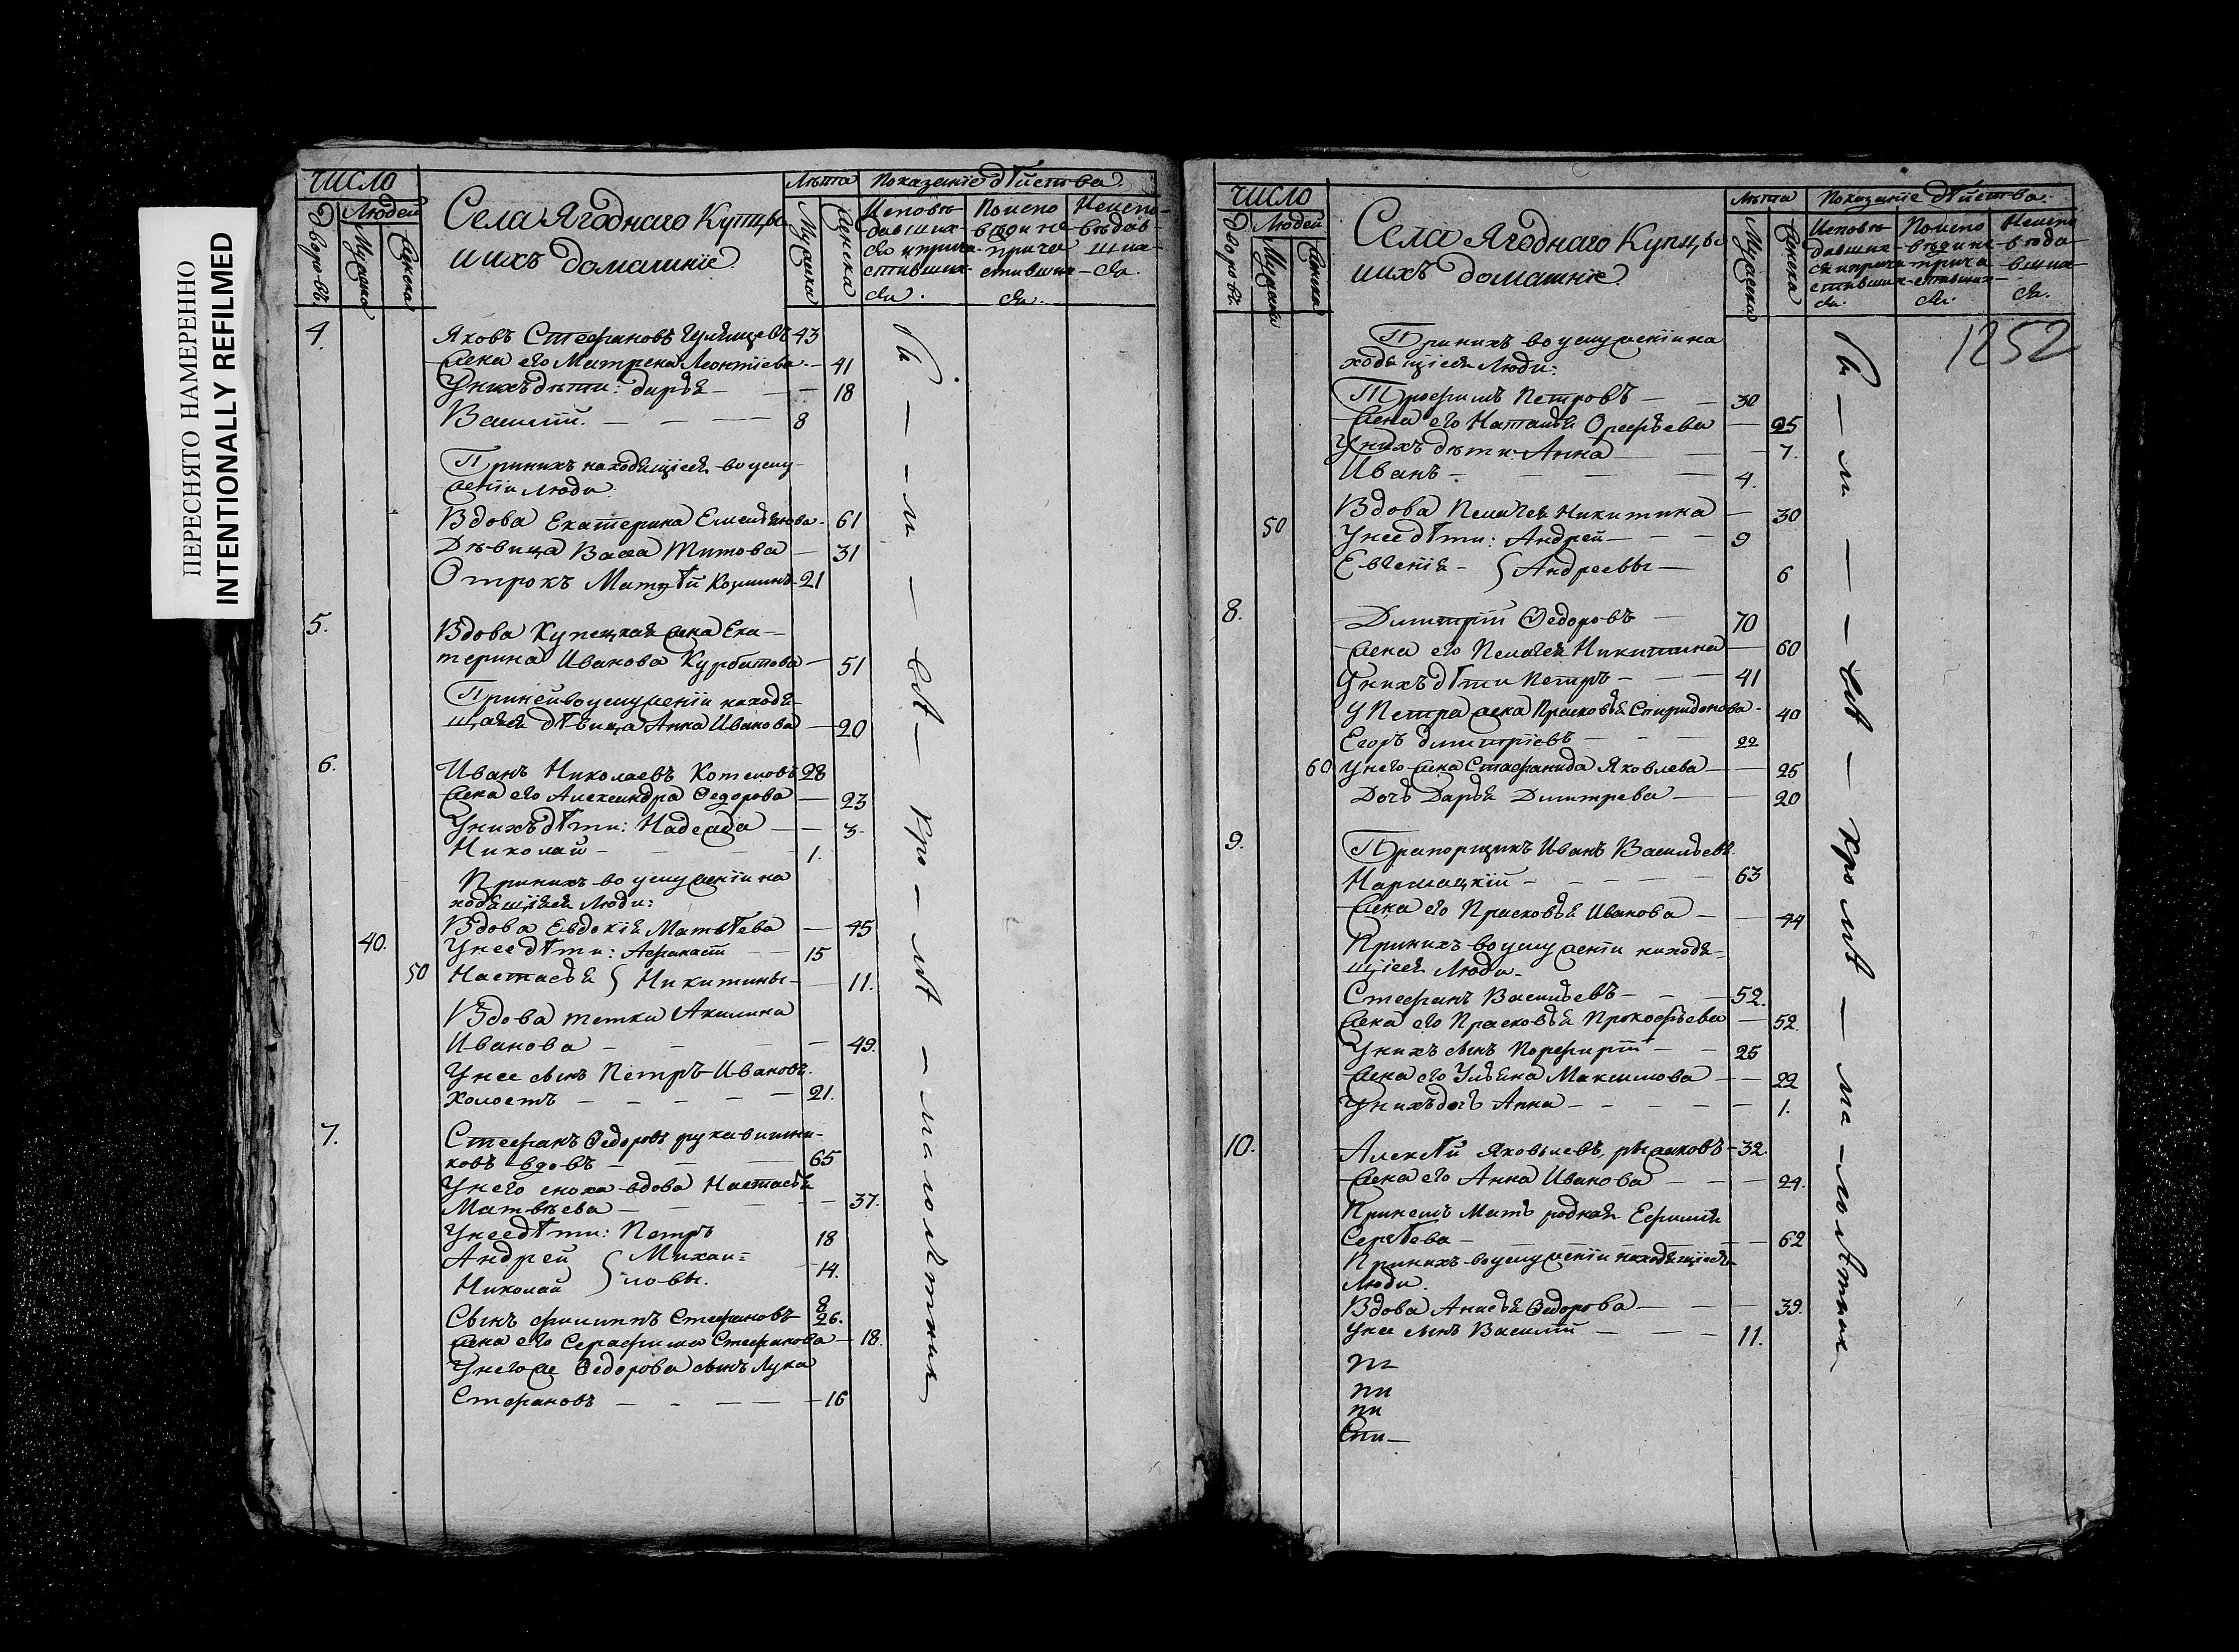 ПЕРЕСНЯТО НАМЕРЕННО
INTENTIONALLY REFILMED
ЧИСЛО
Дворовъ
Людей
Мужеска
Женска
Села Ягоднаго Купцы
и ихъ домашнiе.
Лѣта
Мужеска
Женска
Показанiе дѣйства.
Исповѣ-
давших-
ся и прича-
стивших-
ся.
По испо
вѣди не-
прича
стивших
ся.
Неиспо-
вѣдав-
ших-
ся.
4. Яковъ Стефановъ 43
Жена его Матрена Леонтiева - 41
У нихъ дѣти: Дарья - 18
Василiй. - 8
При нихъ находящiеся во услу-
женiи люди.
Вдова Екатерина Емельянова - 61
Дѣвица Васса Титова - 31
Отрокъ Матѳѣй Козминъ - 21
5. Вдова Купецкая жена Ека-
терина Иванова Курбатова - 51
При ней во услуженiи находя-
щаяся дѣвица Анна Иванова - 20
6. Иванъ Николаевъ Котеловъ 28
Жена его Александра Ѳедорова - 23
У нихъ дѣти: Надежда - 3
Николай - 1.
При нихъ во услуженiи на
ходящiяся люди:
Вдова Евдокiя Матвѣева - 45
40. У нее дѣти: Афанасiй - 15
50 Настасья } Никитины - 11.
Вдова тетка Акилина
Иванова - 49.
У нее сынъ Петръ Ивановъ.
Холостъ - 21.
7. Стефанъ Ѳедоровъ рукавишни-
ковъ вдовъ - 65
У него сноха вдова Настасья
Матвѣева - 37.
У нее дѣти: Петръ 18
Андрей } Михаи= 14.
Николай } ловы. 8
Сынъ Филиппъ Стефановъ 26.
Жена его Серафима Стефанова - 18.
У него же Ѳедорова сынъ Лука
Стефановъ - 16
вѣ - кро - мѣ - малолѣтних
ЧИСЛО
Дворовъ
Людей
Мужеска
Женска
Села Ягоднаго Купцы
и ихъ домашнiе.
Лѣта
Мужеска
Женска
Показанiе дѣйства.
Исповѣ
давших-
ся и прича
стивших-
ся.
По испо
вѣди не-
прича
стивших-
ся.
Неиспо
вѣда
вших
ся.
1252
При нихъ во услуженiи на
ходящiеся люди:
Трофимъ Петровъ - 30
Жена его Наталья Орефьева - 25
У нихъ дѣти: Анна - 7.
Иванъ - 4.
Вдова Пелагея Никитина - 30
50 У нее дѣти: Андрей - 9
Евгенiя - } Андреевы - 6
8. Димитрiй Ѳедоровъ - 70
Жена его Пелагея Никитина - 60
У нихъ дѣти Петръ - 41
У Петра жена Прасковья Спиридонова - 40
Егоръ Димитрiевъ - 22
60 У него жена Стефанида Яковлева - 25
Дочь Дарья Димитрева - 20
9. Прапорщикъ Иванъ Васильевъ
Нармацкiй - 63
Жена его Прасковья Иванова - 44
При нихъ во услуженiи находя-
щiеся люди -
Стефанъ Васильевъ - 52.
Жена его Прасковья Прокофьева - 52.
У нихъ сынъ Порфирiй - 25
Жена его Ульяна Максимова - 22
У нихъ дочь Анна - 1.
10. Алексѣй Яковлевъ рыжковъ - 32.
Жена его Анна Иванова - 24.
При немъ Мать родная Ефимiя
Сергѣева - 62
При нихъ во услуженiи находящiеся
Люди.
Вдова Анисья Ѳедорова - 39.
У нее сынъ Василiй - 11.
кро мѣ - ма - лолѣтних